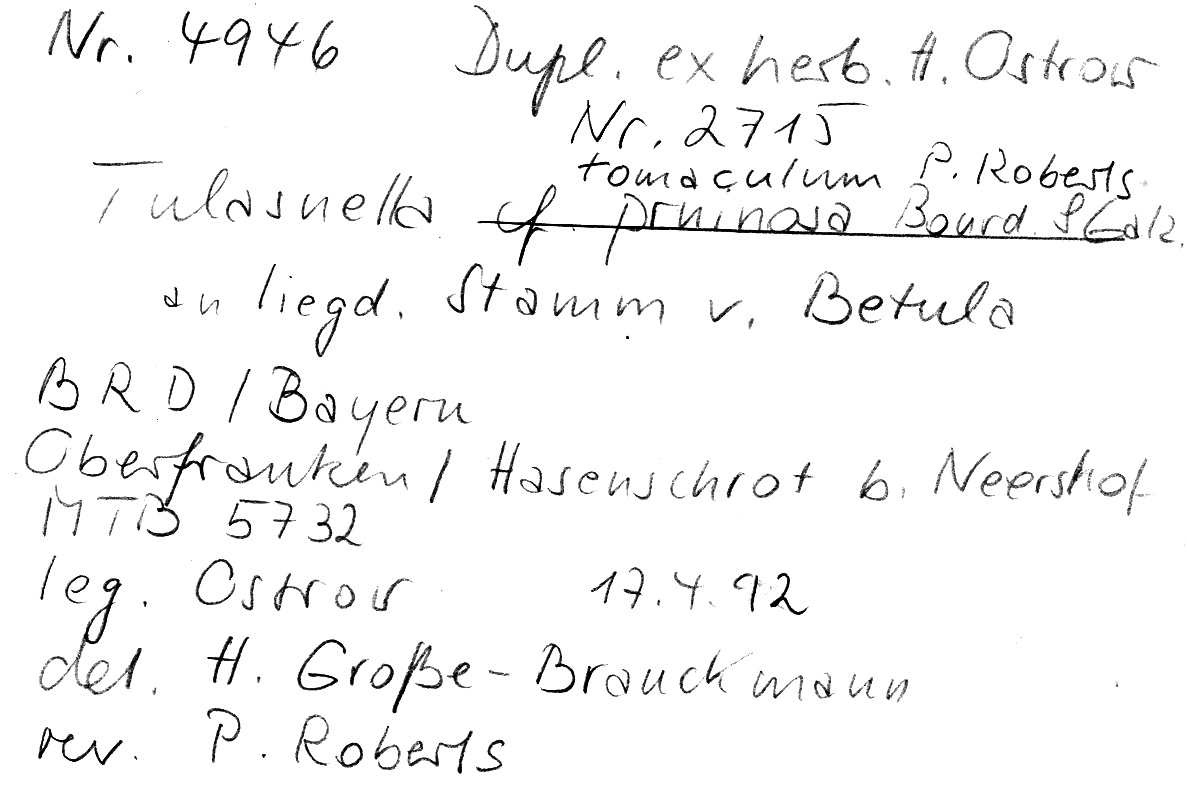 Nr. 4946 Dupl. ex herb. H. Ostrow
Nr. 2715
tomaculum P. Roberts
Tulasnella cf. pruinosa Bourd. & Galz.
an liegd. Stamm v. Betula
BRD / Bayern
Oberfranken / Hasenschrot b. Neershof
MTB 5732
leg. Ostrow 17.4.92
det. H. Große-Brauckmann
rev. P. Roberts